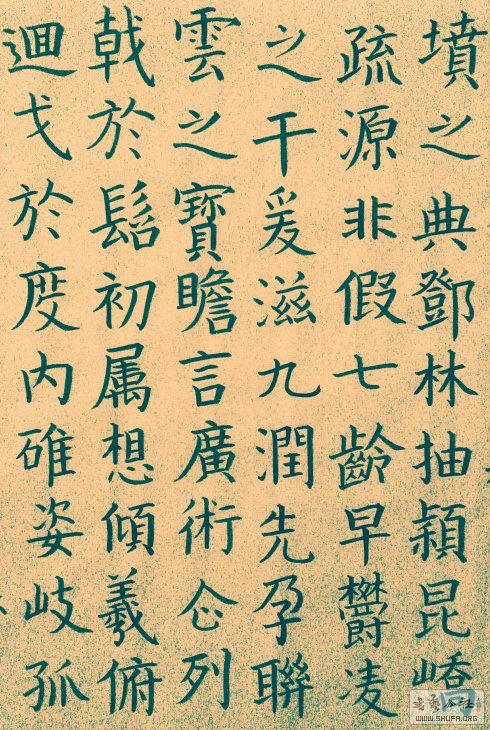 墳之典鄧林抽穎昆嶠
疏源非假七齡早欝凌
之干爰滋九潤先孕聯
雲之寶瞻言廣術列
戟於髫初属想傾羲俯
迴戈於度内碓姿岐孤
WWW.SHUFA.ORG